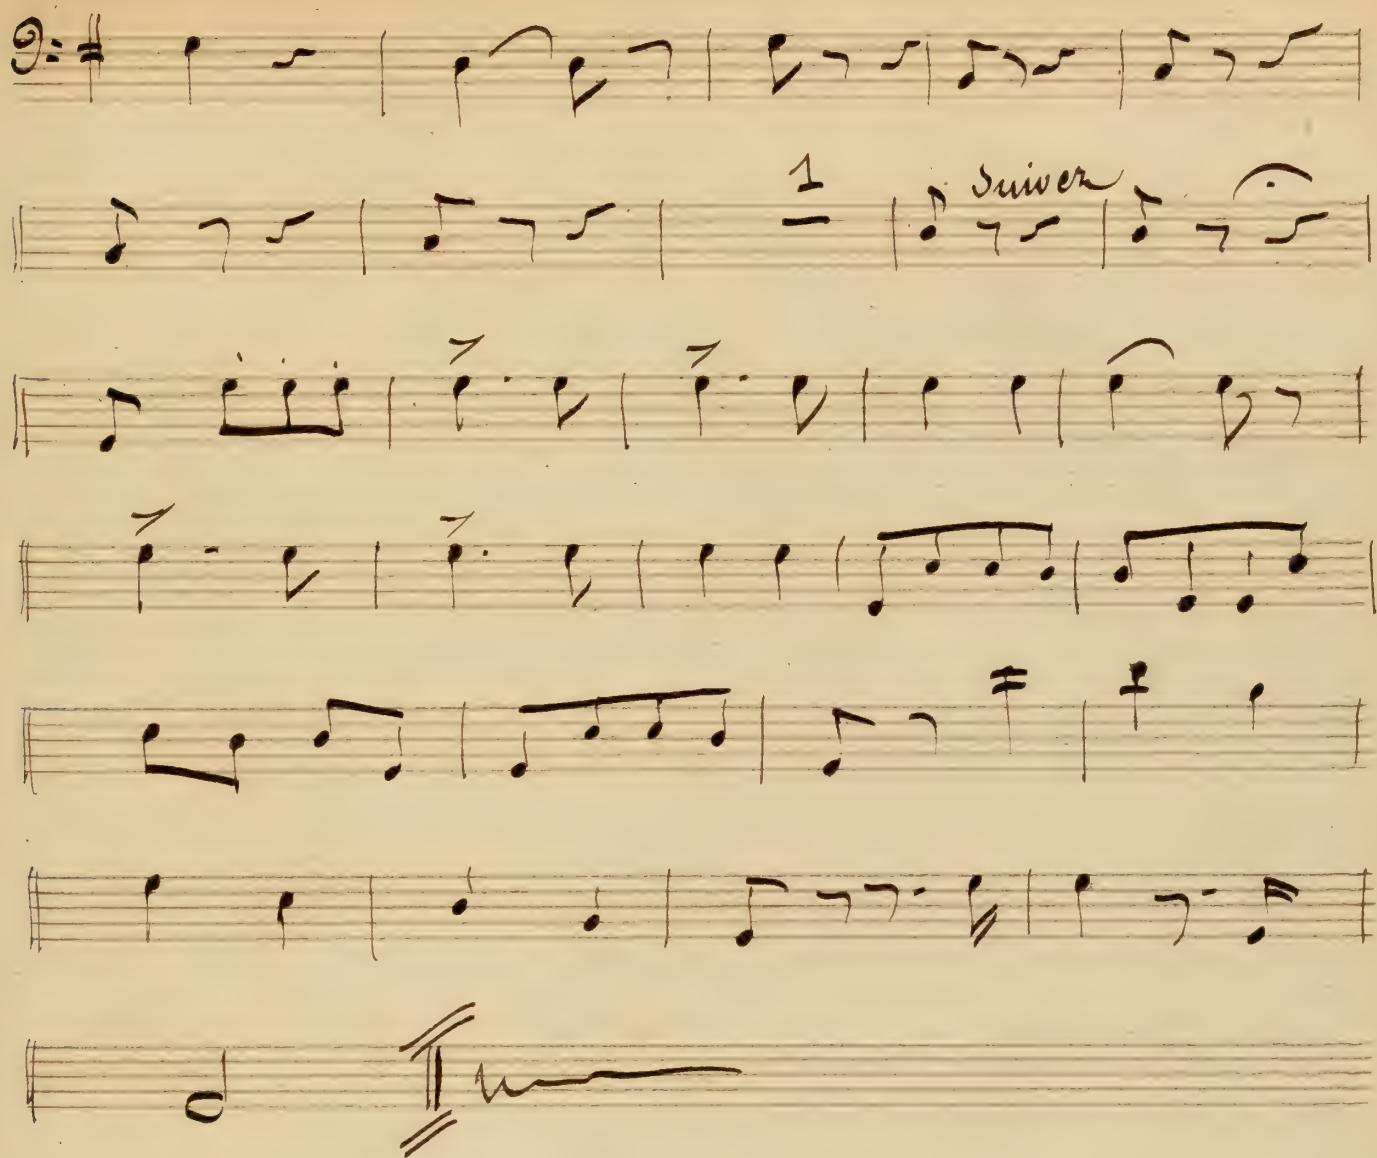 1
Suivez